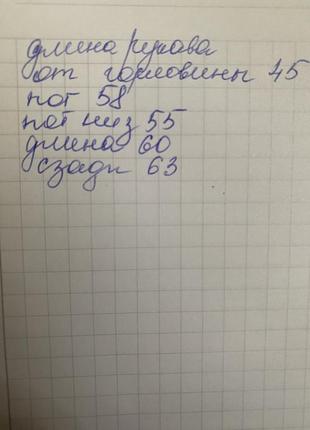 длина рукава
от горловины 45
пот 58
пот низ 55
длина 60
сзади 63